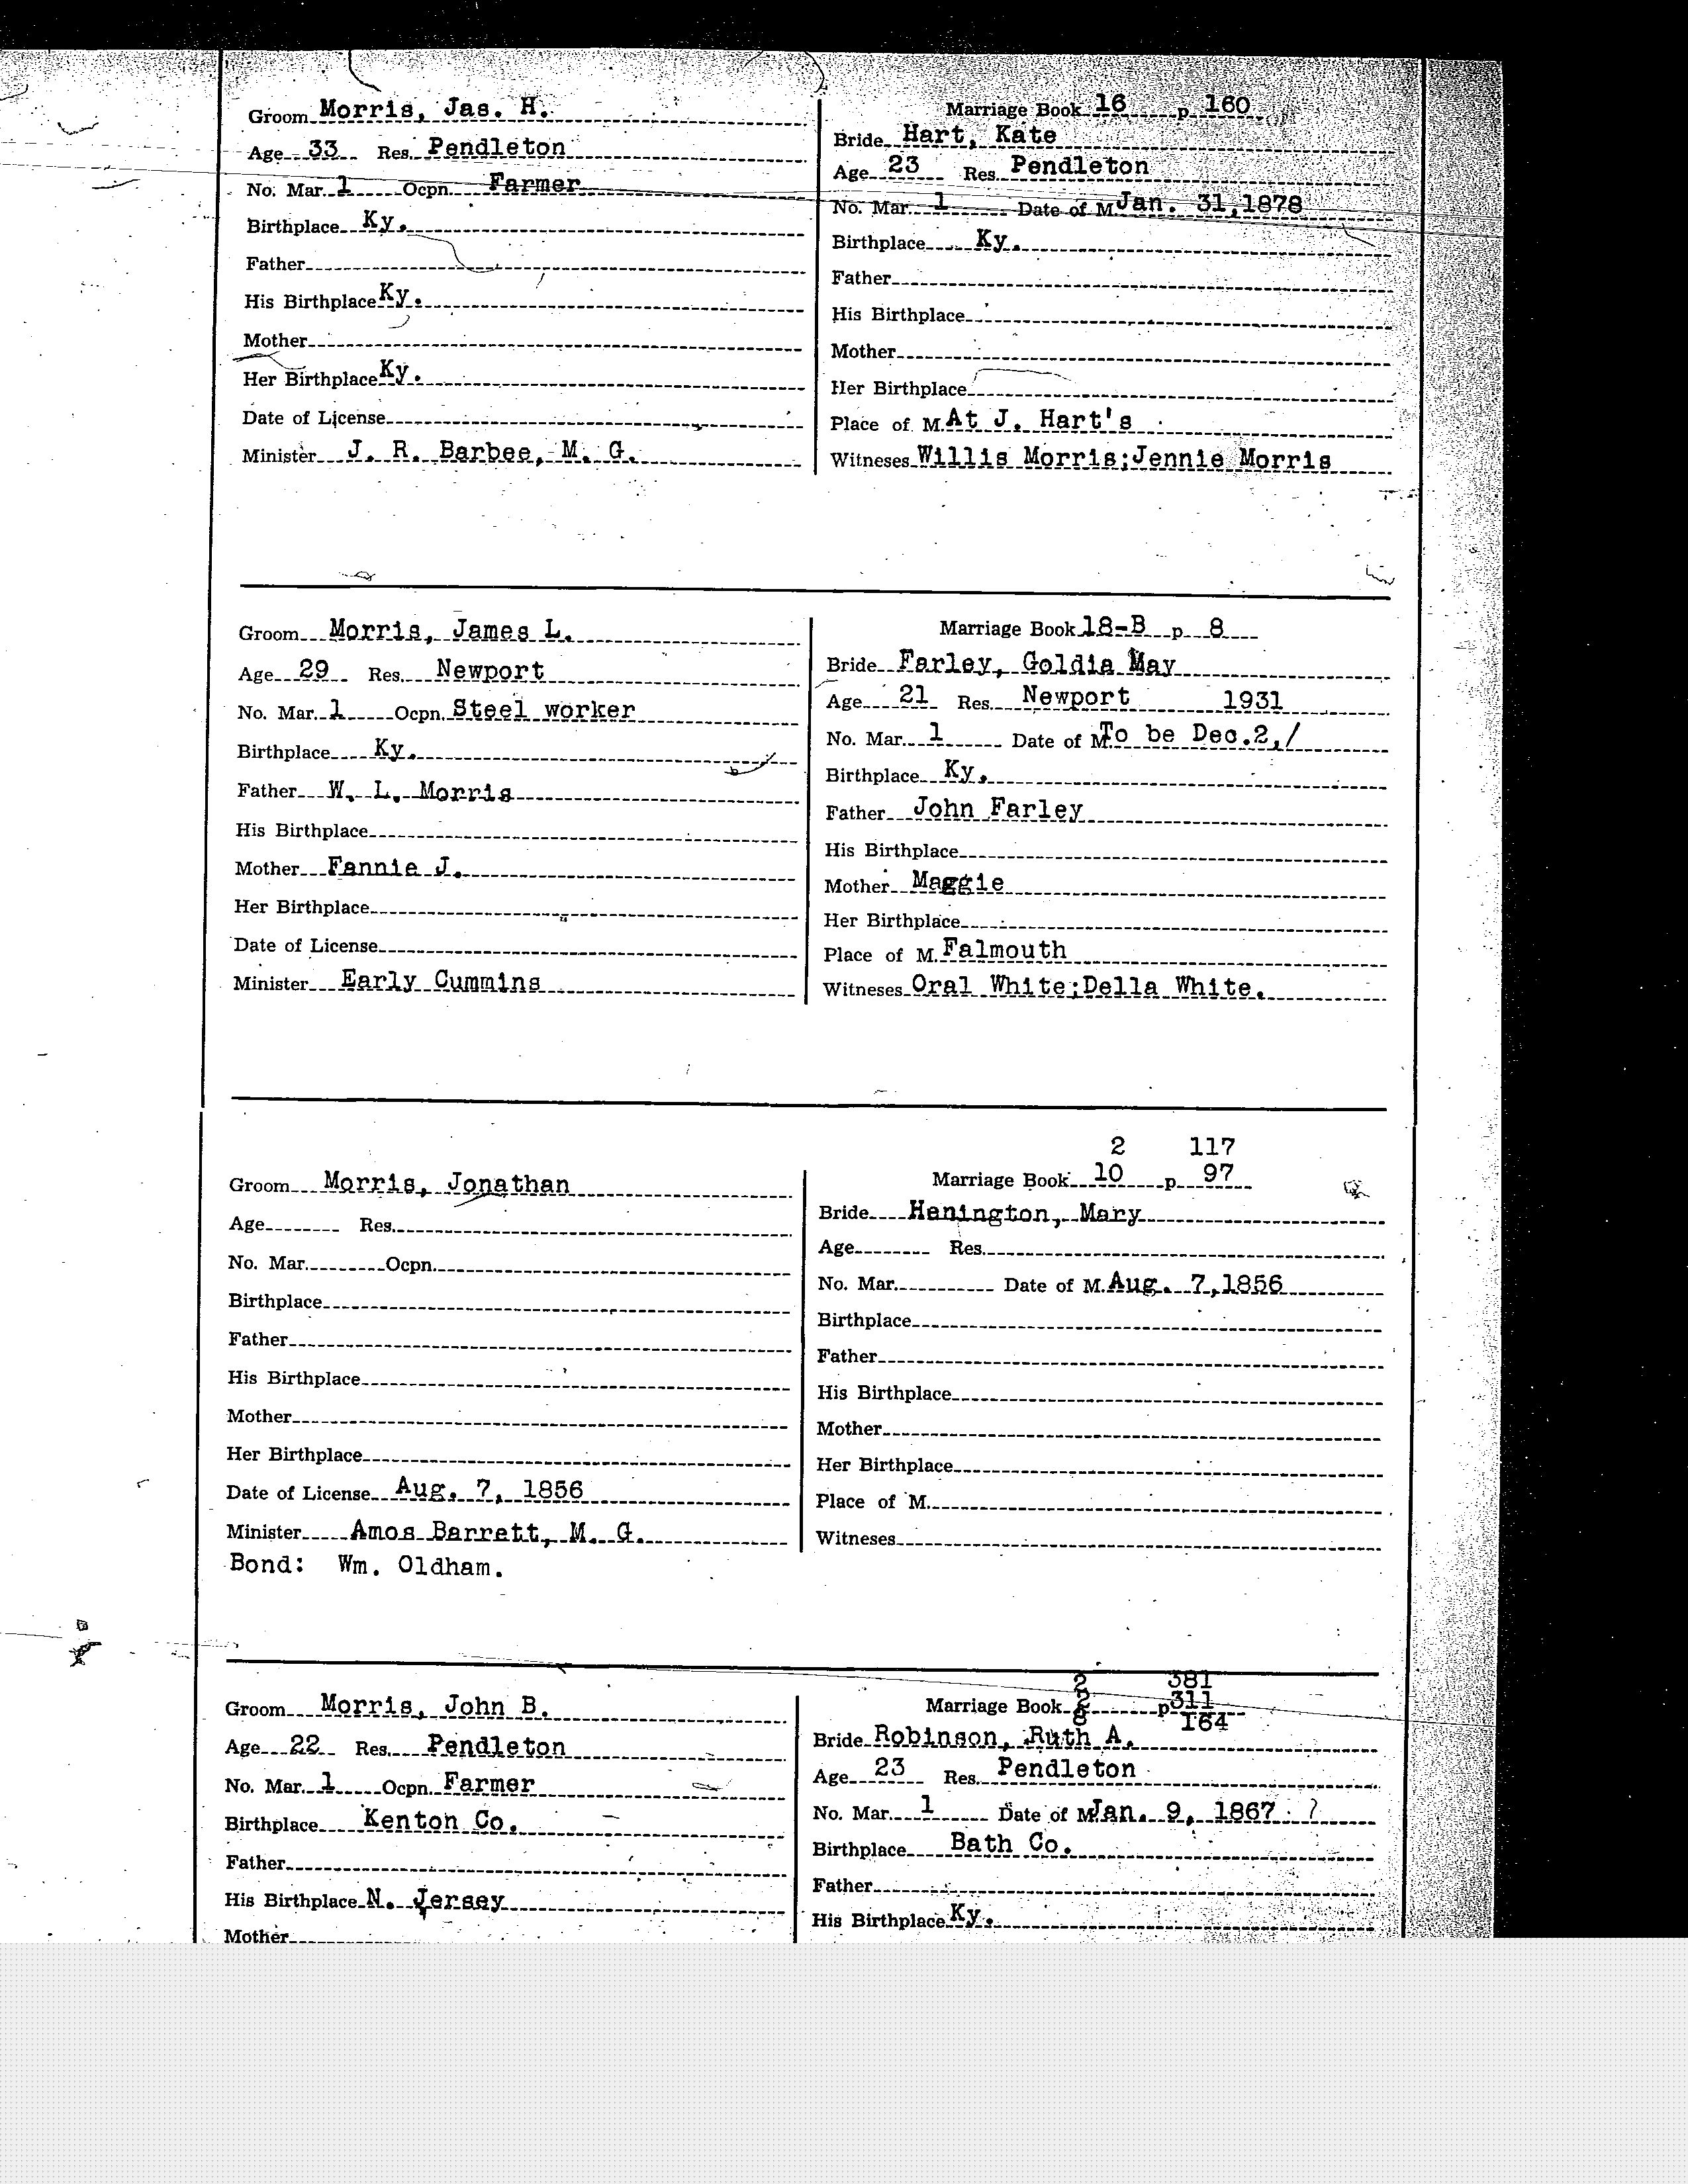 Groom Morris, Jas. H.
Age 33 Res. Pendleton
No. Mar. 1 Ocpn. Farmer
Birthplace Ky.
Father
His Birthplace Ky.
Mother
Her Birthplace Ky.
Date of License
Minister J. R. Barbee, M. G.
Marriage Book 16 p 160
Bride Hart, Kate
Age 23 Res. Pendleton
No. Mar. 1 Date of M. Jan. 31, 1878
Birthplace Ky.
Father
His Birthplace
Mother
Her Birthplace
Place of M. At J. Hart's
Witneses Willis Morris; Jennie Morris
Groom Morris, James L.
Age 29 Res. Newport
No. Mar. 1 Ocpn. Steel worker
Birthplace Ky.
Father W. L. Morris
His Birthplace
Mother Fannie J.
Her Birthplace
Date of License
Minister Early Cummins
Marriage Book 18-B p 8
Bride Farley, Goldia May
Age 21 Res. Newport 1931
No. Mar. 1 Date of M. To be Dec.2,/
Birthplace Ky.
Father John Farley
His Birthplace
Mother Maggie
Her Birthplace
Place of M. Falmouth
Witneses Oral White; Della White.
Groom Morris, Jonathan
Age Res.
No. Mar. Ocpn.
Birthplace
Father
His Birthplace
Mother
Her Birthplace
Date of License Aug. 7, 1856
Minister Amos Barrett, M. G.
Bond: Wm. Oldham.
2 117
Marriage Book 10 p 97
Bride Henington, Mary
Age Res.
No. Mar. Date of M. Aug. 7, 1856
Birthplace
Father
His Birthplace
Mother
Her Birthplace
Place of M.
Witneses
Groom Morris, John B.
Age 22 Res. Pendleton
No. Mar. 1 Ocpn. Farmer
Birthplace Kenton Co.
Father
His Birthplace N. Jersey
Mother
2 381
Marriage Book p 311
8 164
Bride Robinson, Ruth A.
Age 23 Res. Pendleton
No. Mar. 1 Date of M. Jan. 9, 1867 ?
Birthplace Bath Co.
Father
His Birthplace Ky.